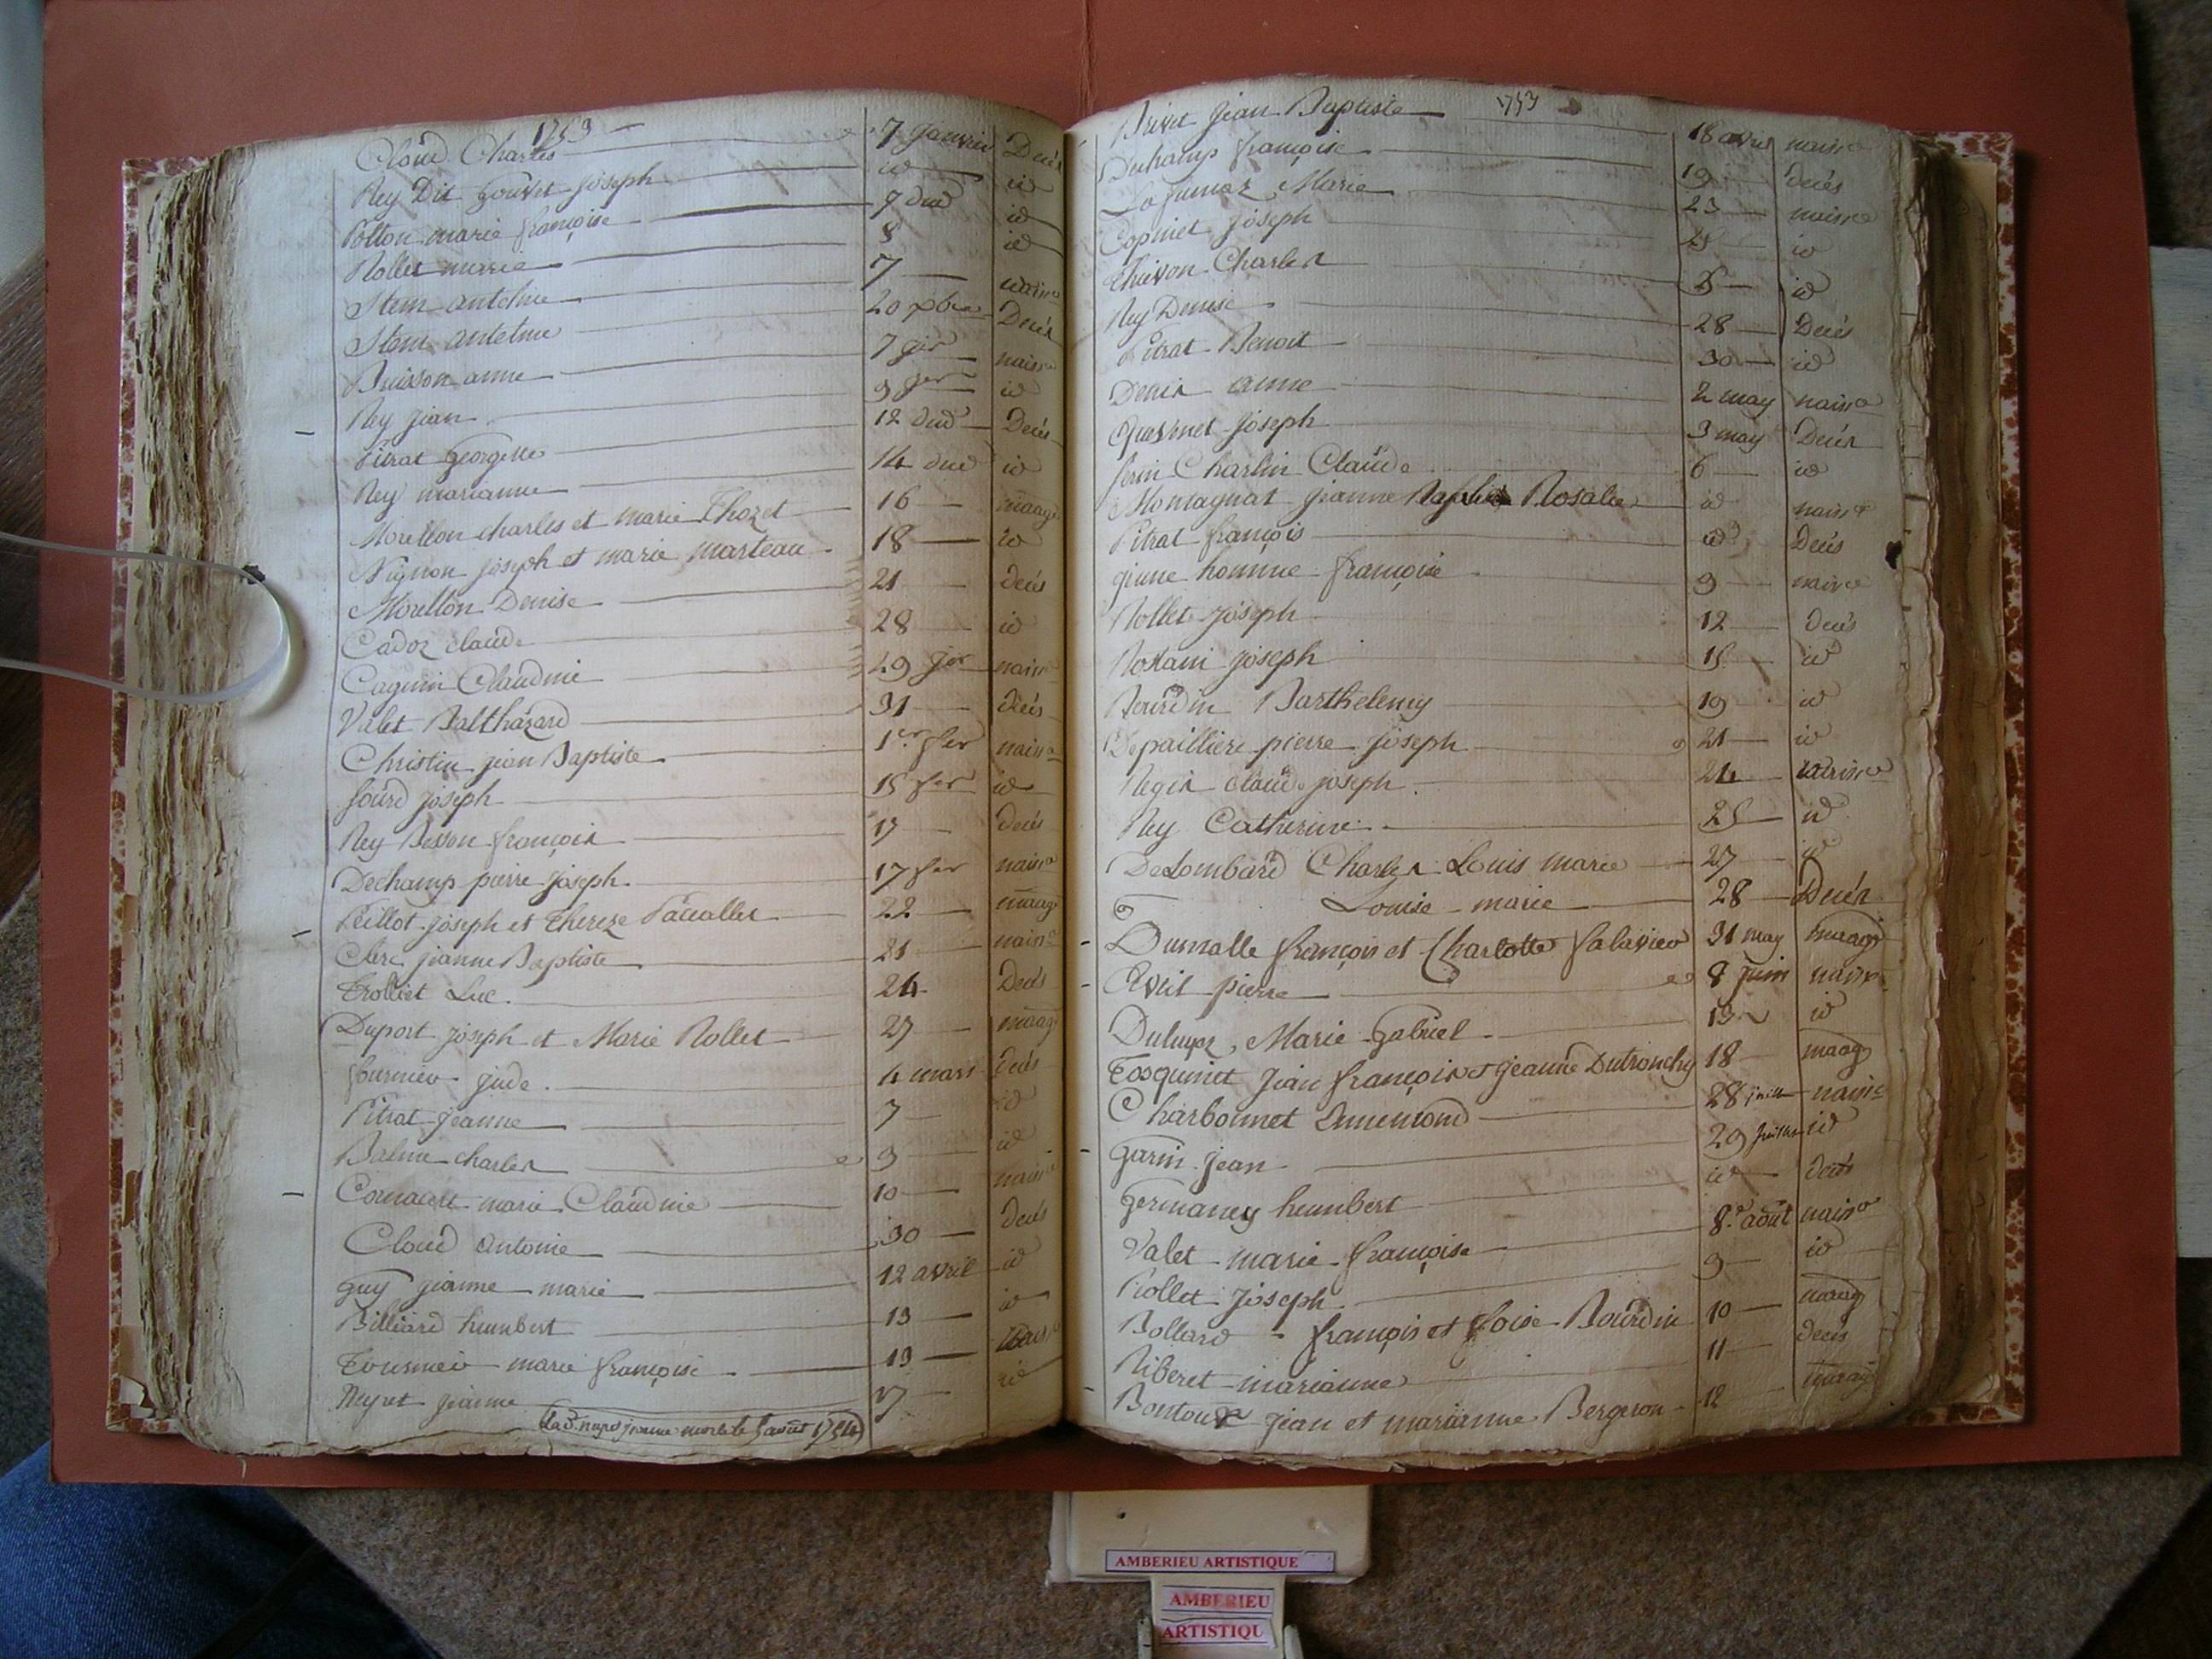 1753
Cloud Charles 7 Janvier Decés
Rey Dit Joseph id id
Potton marie françoise 7 dud id
Rollet marie 8 id
Item antelme 7 naisse
Item antelme 20 xbre Decés
Buisson anne 7 naisse
Rey jean 9 id
Pitrat Georgette 12 dud Decés
Rey marianne 14 dud id
Morellon charles et marie Thozet 16 maage
Vignon joseph et marie marteau 18 id
Morellon Denise 21 decés
Cadoz claude 28 id
Caguin Claudine 29 naisse
Valet Balthazard 31 decés
Christin jean Baptiste 1er fer naisse
joseph 15 fer id
Rey françois 17 decés
Dechamp pierre joseph 17 fer naisse
Peillot joseph et Thereze Pacallet 22 maage
Clerc jeanne Baptiste 21 naisse
Trolliet Luc 24 Decés
Duport joseph et Marie Rollet 27 maage
fournier jude 4 mars decés
Pitrat jeanne 7 id
Balme charles 9 id
marie Claudine 10 naisse
Cloud antoine 30 decés
guy jeanne marie 12 avril id
Billiard humbert 13 id
Tournier marie françoise 13 naisse
Neyret jeanne 17 id
jeanne morte le 5 août 1754
1753
Brivet Jean Baptiste 18 avril naisse
Duchamp françoise 19 decés
Marie 23 naisse
Copinet joseph 25 id
Charles id
Rey Denise 28 Decés
Pitrat Benoit 30 id
Denis anne 2 may naisse
joseph 3 may Decés
Charlin Claude 6 id
Montagnat jeanne Rosalie id naisse
Pitrat françois id Decés
jeune homme françoise 9 naisse
Rollet joseph 12 decés
joseph 15 id
Bourdin Barthelemy 19 id
Depailliere pierre joseph 21 id
Claude joseph 24 naisse
Rey Catherine 25 id
DeLombard Charles Louis marie 27 id
Louise marie 28 Decés
Dumalle françois et Charlotte 31 may maage
Avril pierre 8 juin naisse
Marie Gabriel 13 id
Tosquinet jean françois et jeanne Dutronchy 18 maage
Charbonnet Annemond 28 juillet naisse
garin jean 29 juillet id
germaney humbert id decés
Valet marie françoise 8 août naisse
Rollet joseph 9 id
Bollard françois et Bourdin 10 maage
Riberet marianne 11 decés
Bontoux jean et marianne Bergeron 12 maage
AMBERIEU ARTISTIQUE
AMBERIEU
ARTISTIQU